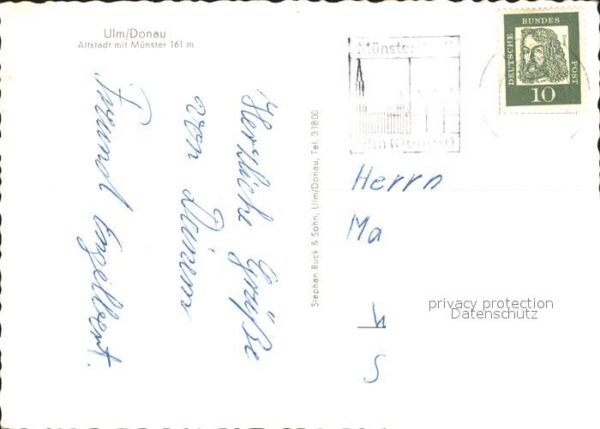 Ulm/Donau
Altstadt mit Münster 161 m
Herzliche Grüße
von Deinem
Freund Engelbert.
Stephan Buck & Sohn, Ulm/Donau, Tel. 31800
Münster
Ulm (Donau)
DEUTSCHE BUNDESPOST
10
Herrn
Ma
privacy protection
Datenschutz
S